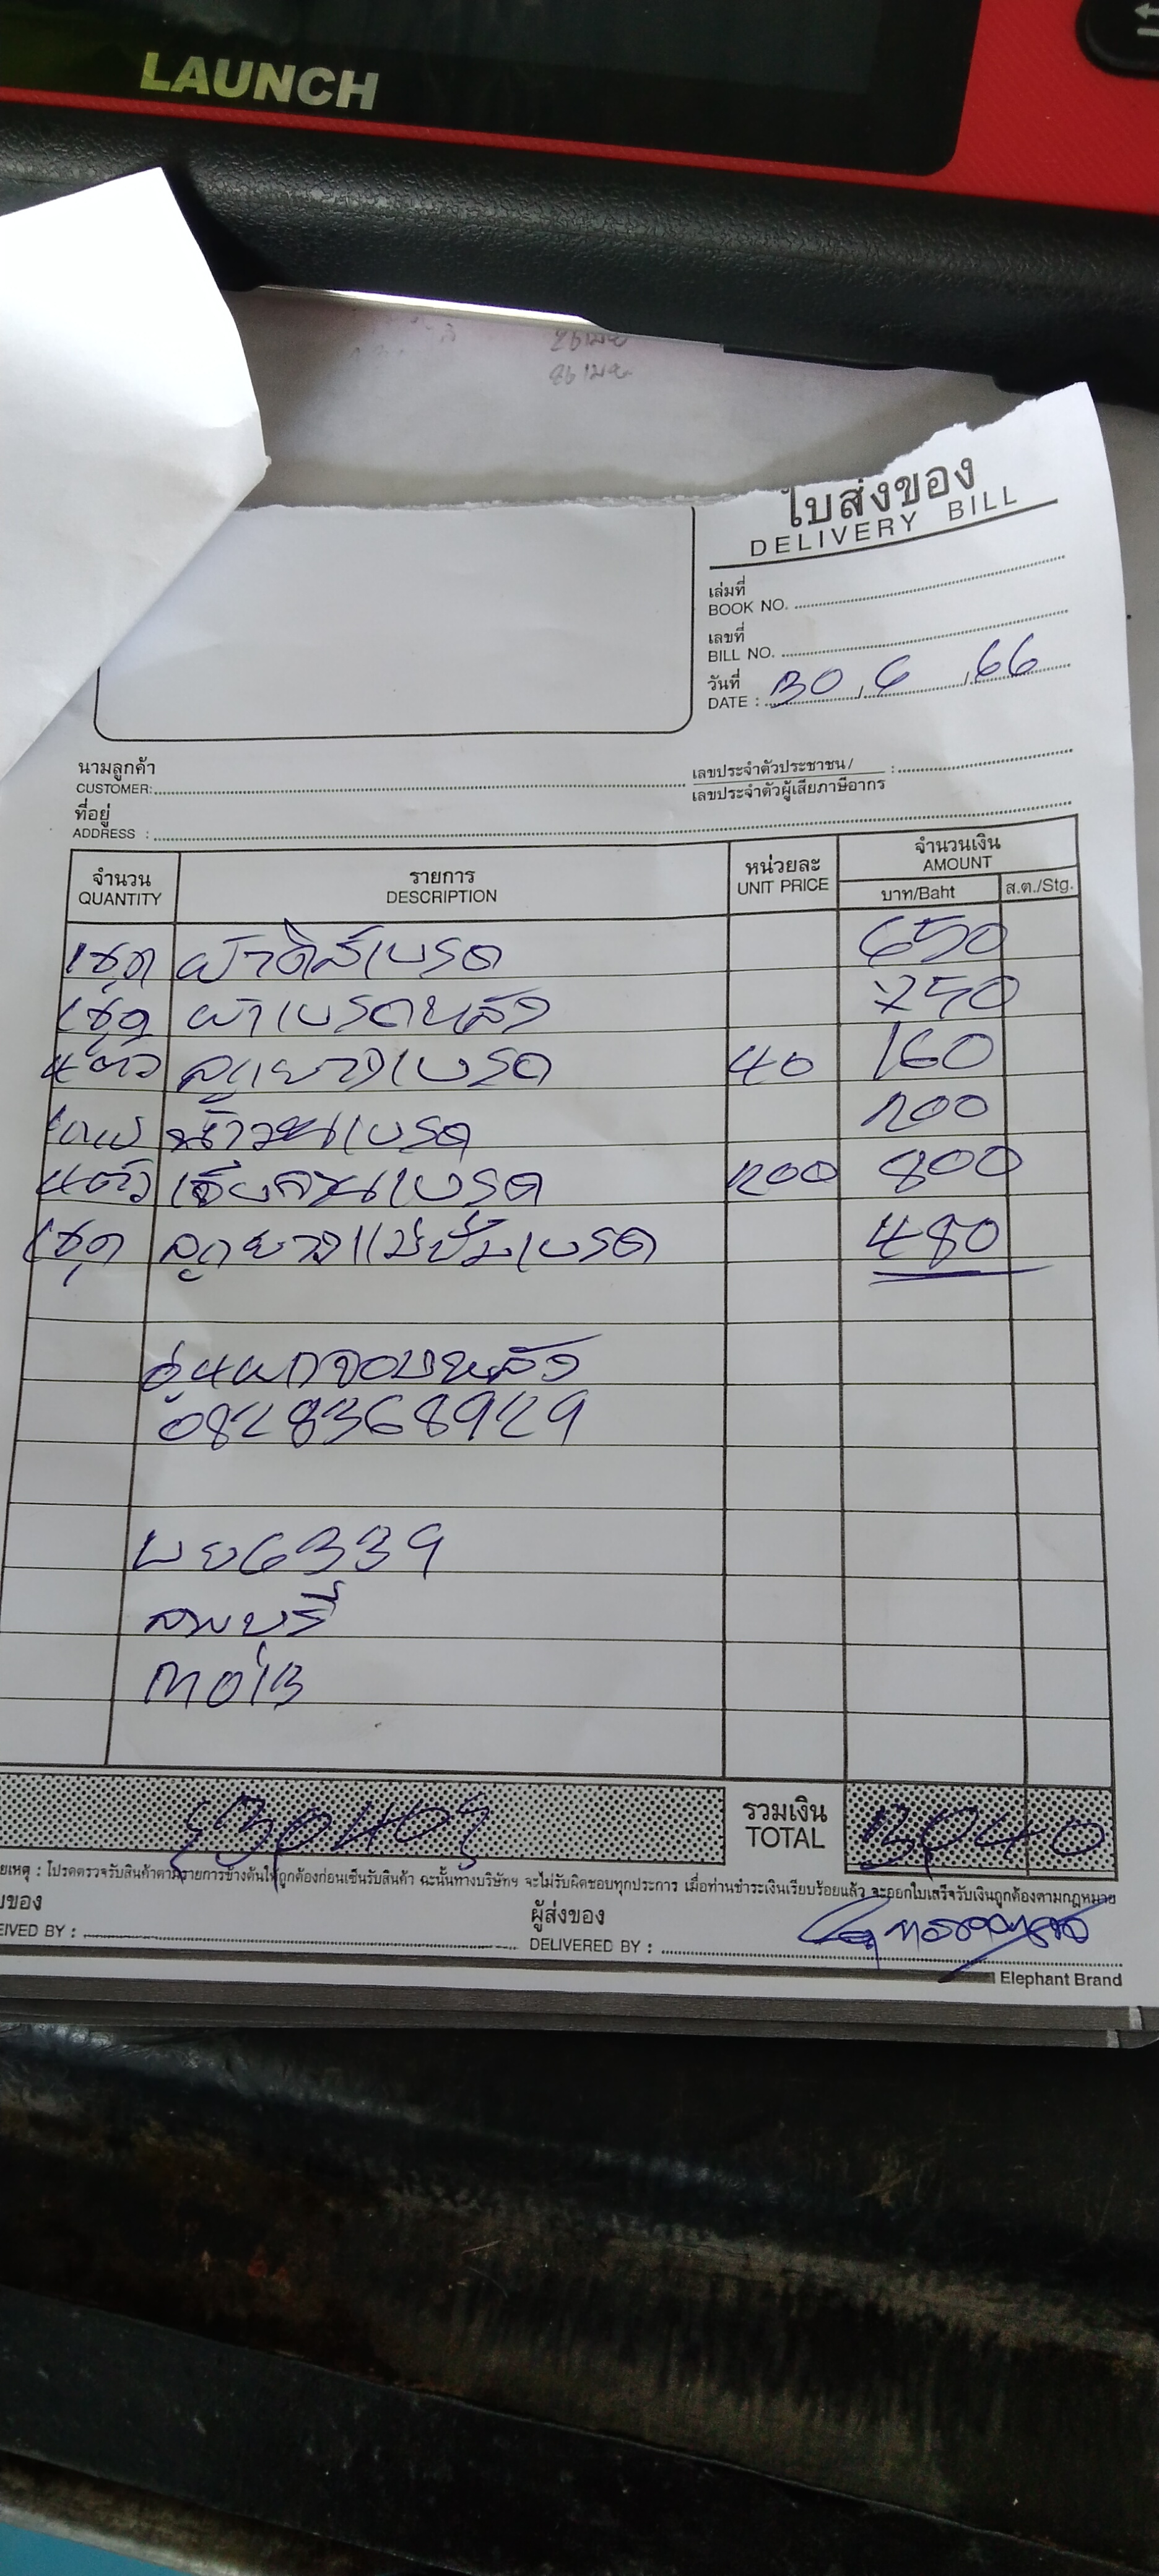 LAUNCH
ใบส่งของ
DELIVERY BILL
เล่มที่
BOOK NO.
เลขที่
BILL NO.
วันที่
DATE : 30 / 6 / 66
นามลูกค้า
CUSTOMER:
เลขประจำตัวประชาชน /
เลขประจำตัวผู้เสียภาษีอากร :
ที่อยู่
ADDRESS :
จำนวน รายการ หน่วยละ จำนวนเงิน
QUANTITY DESCRIPTION UNIT PRICE AMOUNT
บาท/Baht ส.ต./Stg.
1ชุด ผ้าดิสเบรค 650
1ชุด ผ้าเบรคหลัง 750
4ตัว ลูกยางเบรค 40 160
น้ำมันเบรค 200
4ตัว เจียจานเบรค 200 800
1ชุด ลูกยางแม่ปั๊มเบรค 480
0828368929
6339
ลพบุรี
3,040
รวมเงิน
TOTAL 3,040
ยเหตุ : โปรดตรวจรับสินค้าตามรายการข้างต้นให้ถูกต้องก่อนเซ็นรับสินค้า ฉะนั้นทางบริษัทฯ จะไม่รับผิดชอบทุกประการ เมื่อท่านชำระเงินเรียบร้อยแล้ว จะออกใบเสร็จรับเงินถูกต้องตามกฎหมาย
บของ
EIVED BY :
ผู้ส่งของ
DELIVERED BY :
Elephant Brand